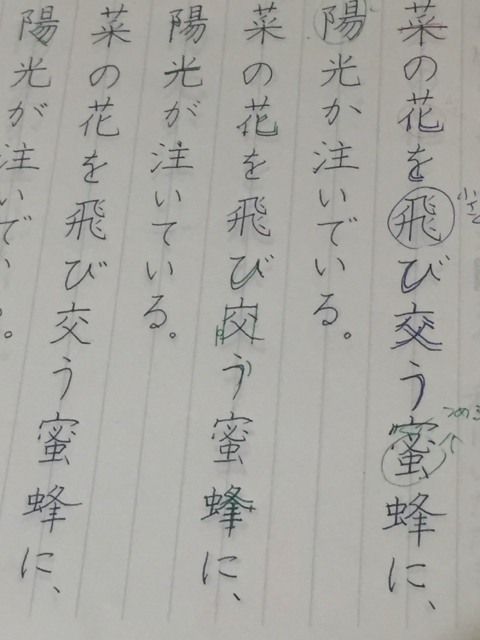 菜の花を飛び交う蜜蜂に、
陽光か注いでいる。
菜の花を飛び交う蜜蜂に、
陽光が注いている。
菜の花を飛び交う蜜蜂に、
陽光が注いでい